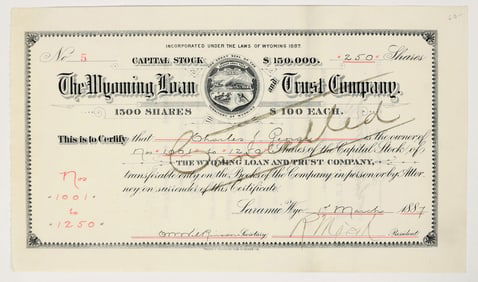 INCORPORATED UNDER THE LAWS OF WYOMING 1887.
No 5 CAPITAL STOCK $150,000. 250 Shares
The Wyoming Loan and Trust Company.
1500 SHARES $100 EACH.
This is to Certify that Charles is the owner of
Nos 1001 to 1250 Shares of the Capital Stock of
Cancelled
THE WYOMING LOAN AND TRUST COMPANY,
transferable only on the Books of the Company in person or by Attor-
ney on surrender of this Certificate.
Nos
1001
to
1250
Laramie Wyo. March 1887
Secretary. President.